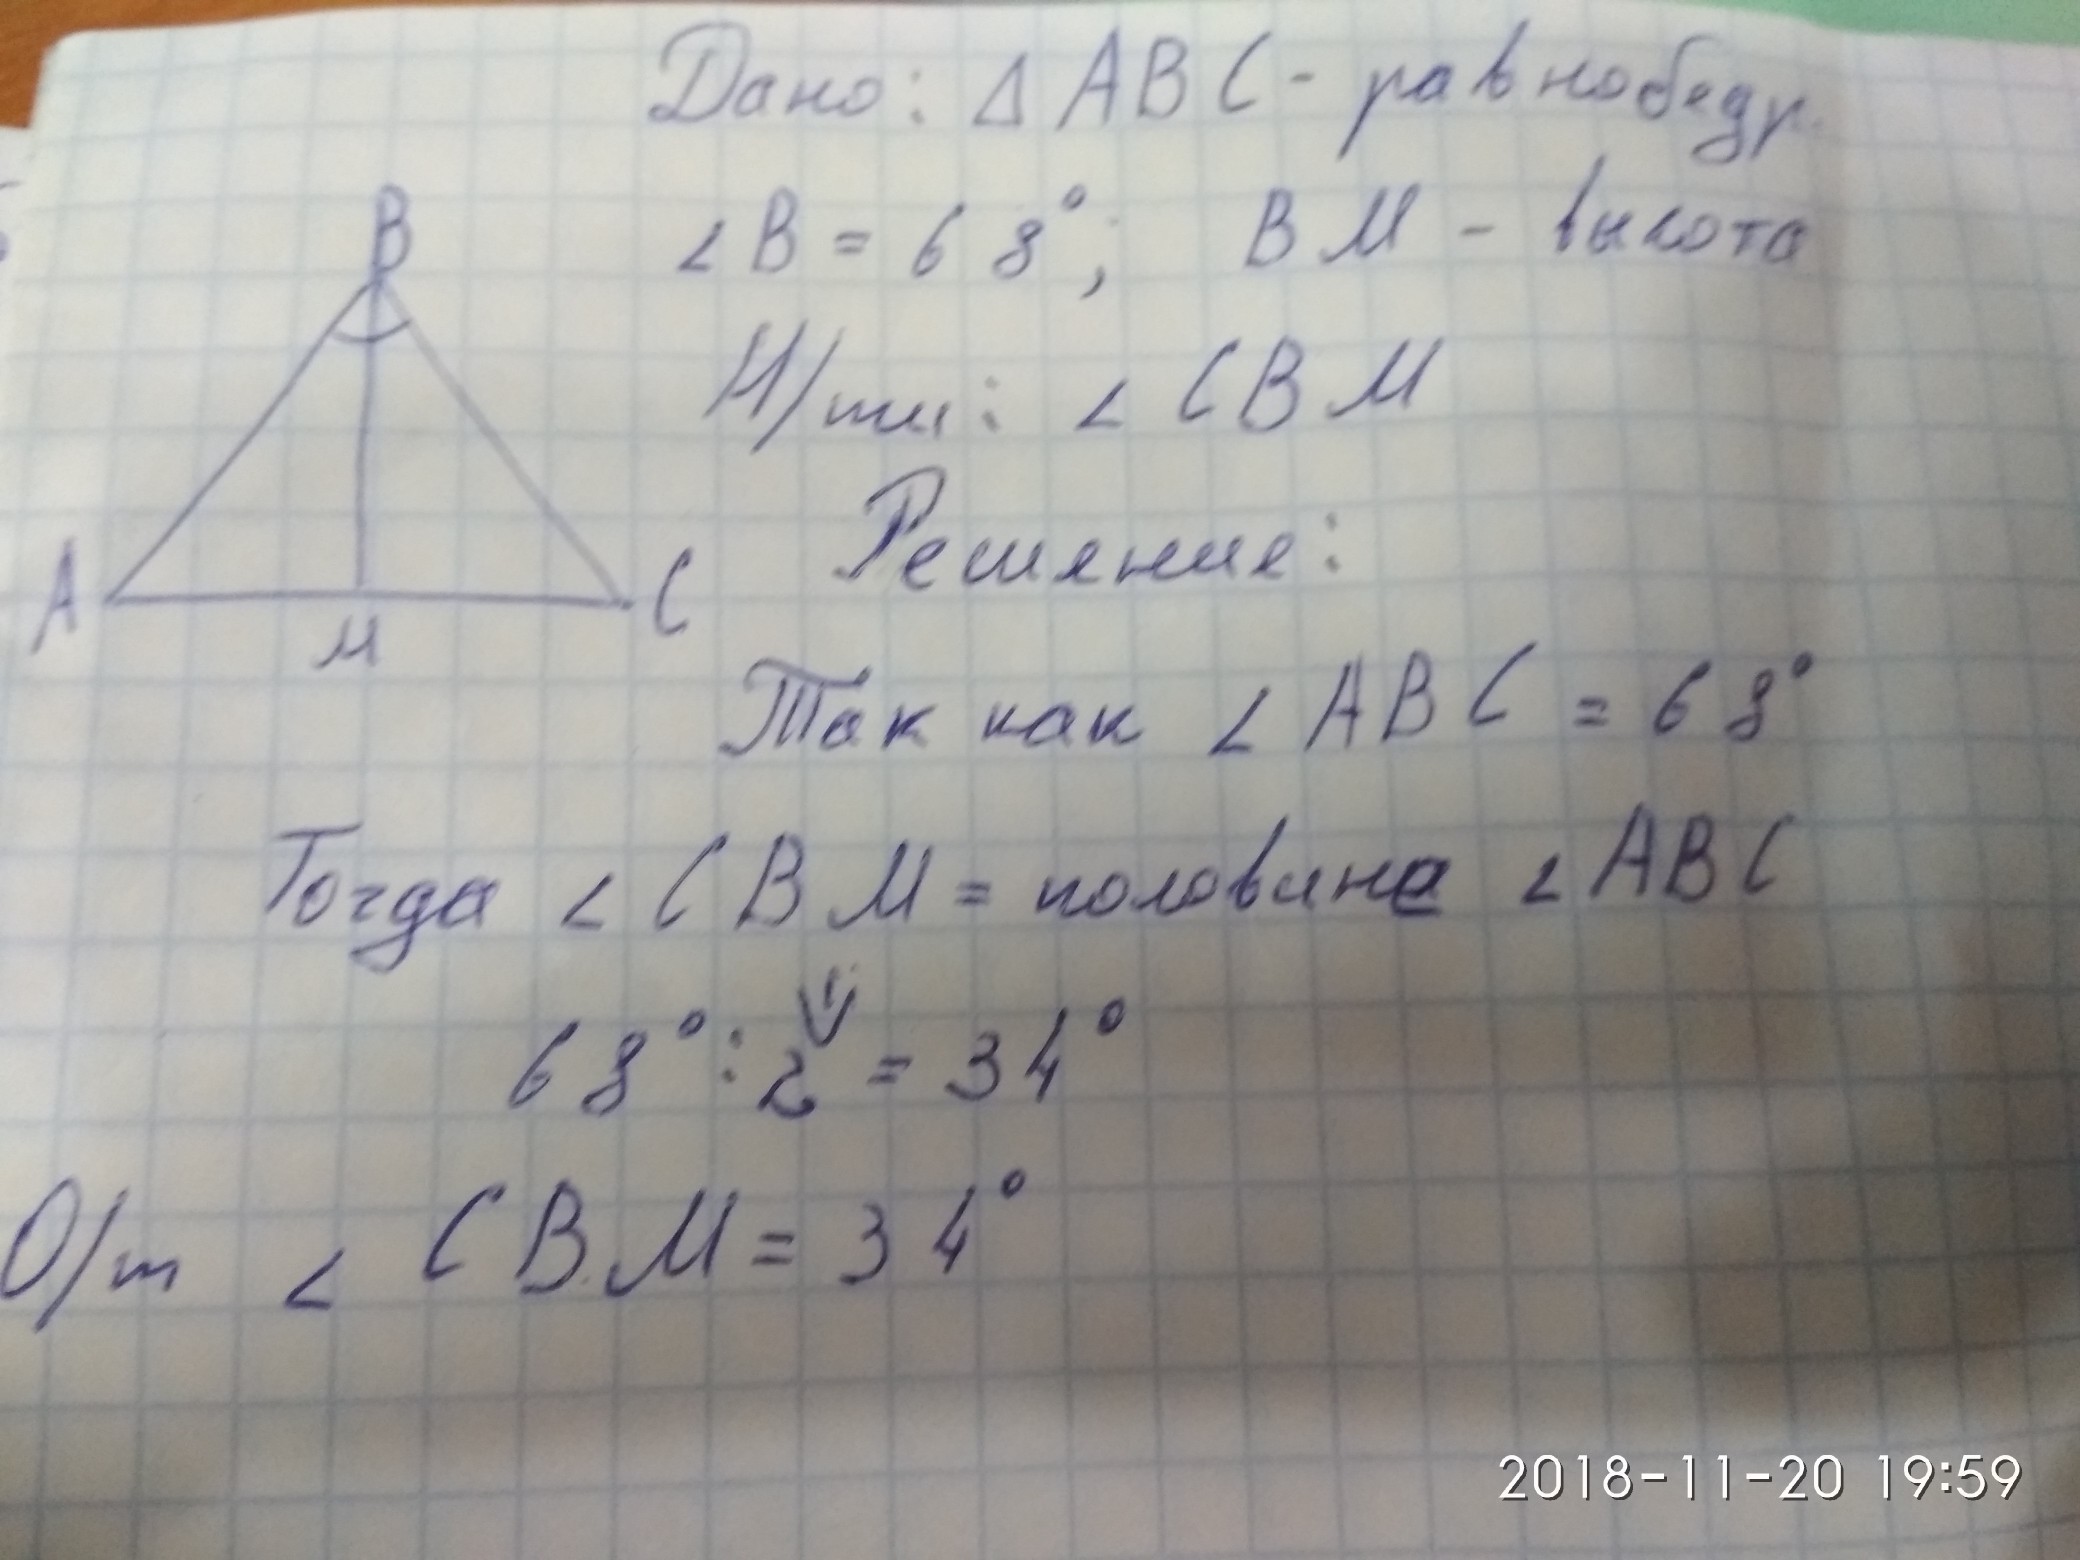 Дано: Δ ABC - равнобедр.
∠B = 68°; BM - высота
Н/ти: ∠CBM
Решение:
B
A
M
C
Так как ∠ABC = 68°
Тогда ∠CBM = половине ∠ABC
68° : 2 = 34°
О/т ∠CBM = 34°
2018-11-20 19:59